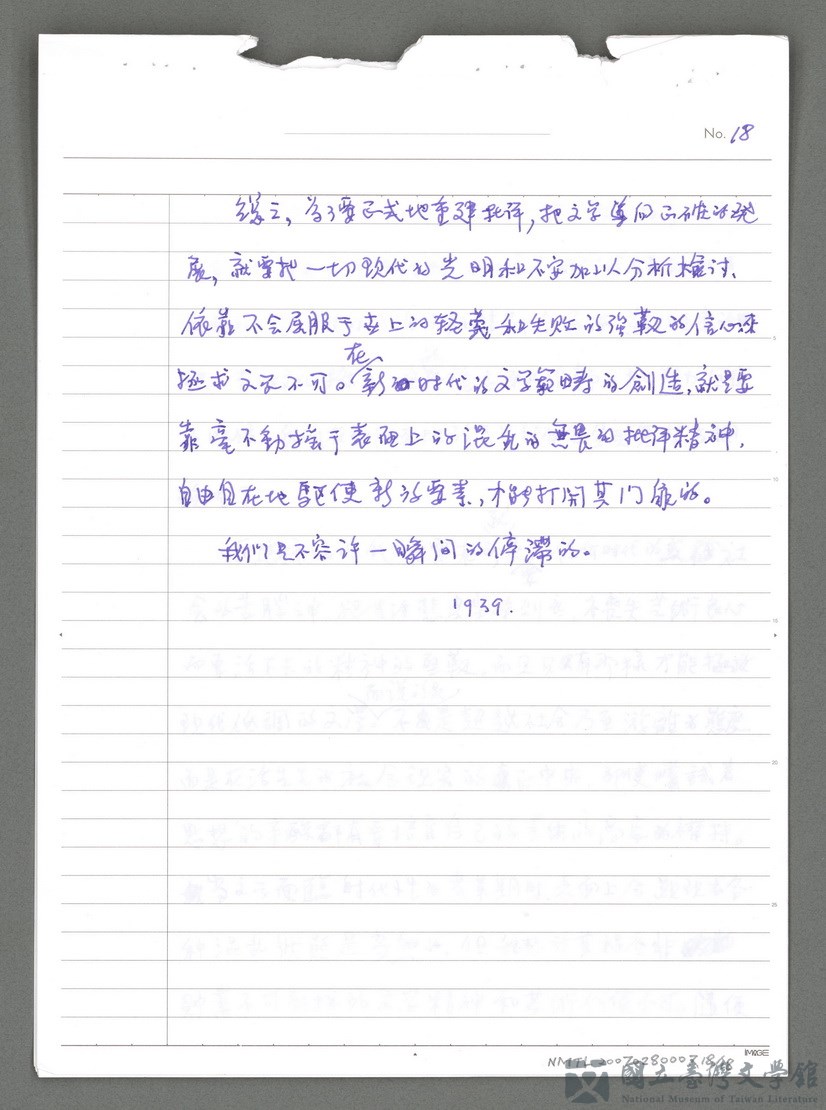 No. 18
總之,為了要正式地重建批評,把文学導向正確的発
展,就要把一切現代的光明和不安加以分析檢討、
依靠不会屈服于世上的轻蔑和失敗的強靱的信心來
拯求文学不可。在新的时代的文学範疇的創造,就是要
靠毫不動搖于表面上的混乱的無畏的批评精神,
自由自在地驅使新的要素,才能打開其门扉的。
我们是不容许一瞬间的停滯的。
1939.
5
10
15
20
25
IMAGE
NMTL20070280007
國立臺灣文學館
National Museum of Taiwan Literature